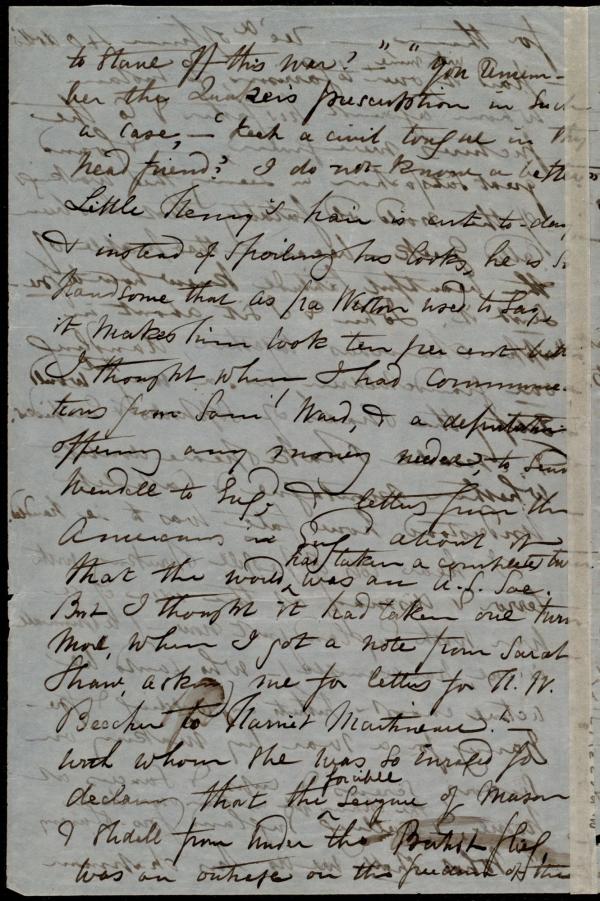 to stave off this war?" "You remem-
ber the Quaker's prescription in such
a case, — 'Keep a civil tongue in thy
head friend'? I do not know a better
Little Henry's hair is cut to-day
& instead of spoiling his looks, he is so
handsome that as pa Weston used to say,
it makes him look ten per cent better
I thought when I had communica-
tions from Saml Ward, & a deputation
offering any money needed, to send
Wendell to Eng. & letters from the
Americans in Eng about it
had
that the world ^ taken a complete turn
was an A. S. Soc.
But I thought it had taken one turn
more, when I got a note from Sarah
Shaw, asking me for letters for H. W.
Beecher to Harriet Martineau! —
with whom she was so enraged for
forcible
declaring that the ^ seizure of Mason
& Slidell from under the British flag,
was an outrage on the freedom of the